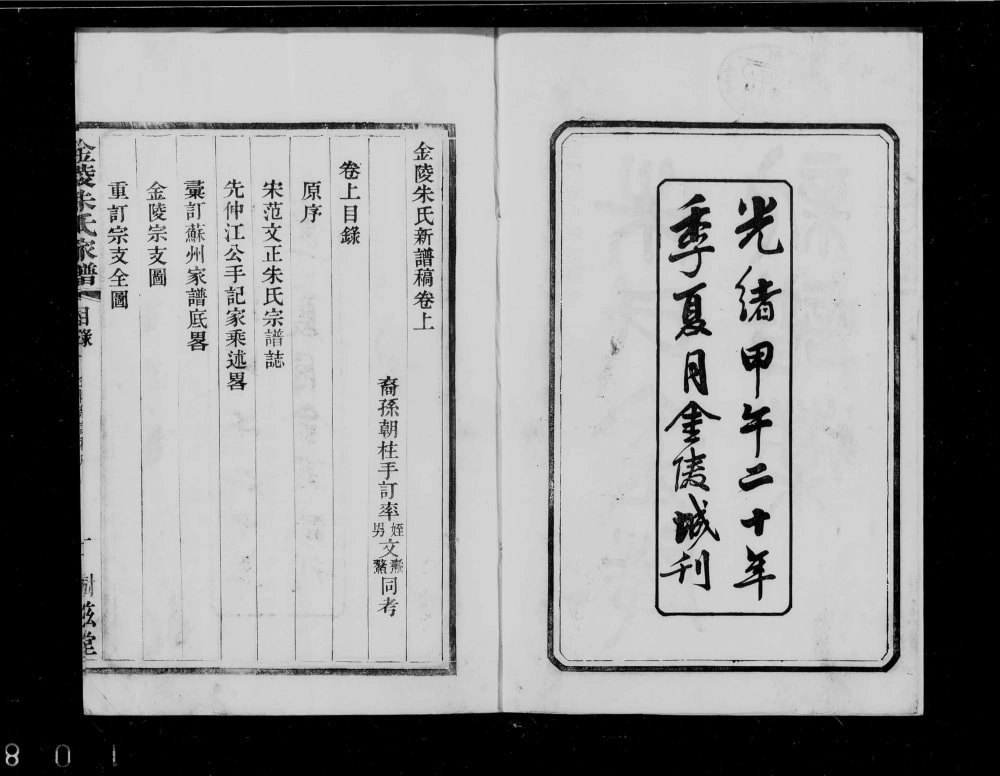 光緒甲午二十年
季夏月金陵城刊
金陵朱氏新譜稿卷上
裔孫朝柱手訂率姪男文同考
卷上目錄
原序
宋范文正朱氏宗譜誌
先仲江公手記家乘述畧
彚訂蘇州家譜底畧
金陵宗支圖
重訂宗支全圖
金陵朱氏家譜
目錄
樹滋堂
801